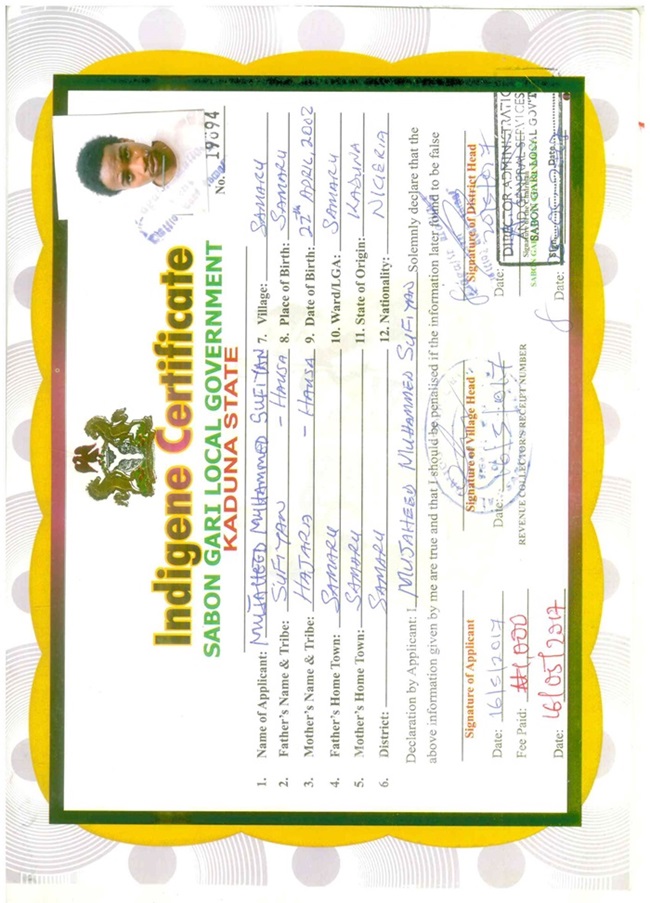 No. 19094
Indigene Certificate
SABON GARI LOCAL GOVERNMENT
KADUNA STATE
1. Name of Applicant: MUJAHEED MUHAMMED SUFIYAN 7. Village: SAMARU
2. Father's Name & Tribe: SUFIYAN - HAUSA 8. Place of Birth: SAMARU
3. Mother's Name & Tribe: HAJARA - HAUSA 9. Date of Birth: 27th APRIL, 2002
4. Father's Home Town: SAMARU 10. Ward/LGA: SAMARU
5. Mother's Home Town: SAMARU 11. State of Origin: KADUNA
6. District: SAMARU 12. Nationality: NIGERIA
Declaration by Applicant: I MUJAHEED MUHAMMED SUFIYAN Solemnly declare that the
above information given by me are true and that I should be penalised if the information later found to be false
Signature of Applicant Signature of Village Head Signature of District Head
Date: 16/5/2017 Date: 16/5/2017 Date:
DIRECTOR ADMINISTRATION
AND GENERAL SERVICES
SABON GARI LOCAL GOV'T
Sign Date
Fee Paid: REVENUE COLLECTOR'S RECEIPT NUMBER
Date: 16/05/2017 Date: